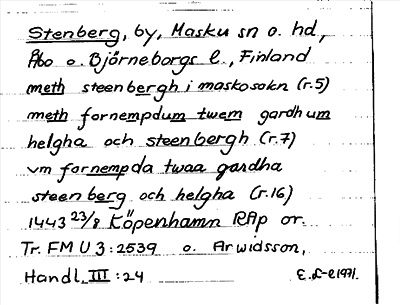 Stenberg, by, Masku sn o. hd,
Åbo o. Björneborgs l., Finland
meth steenbergh i maskosokn (r.5)
meth fornempdum twem gardhum
helgha och steenbergh (r.7)
vm fornempda twaa gardha
steenberg och helgha (r.16)
1443 23/8 Köpenhamn RAp or.
Tr. FMU 3:2539 o. Arwidsson,
Handl. III :24 E.L-e 1971.